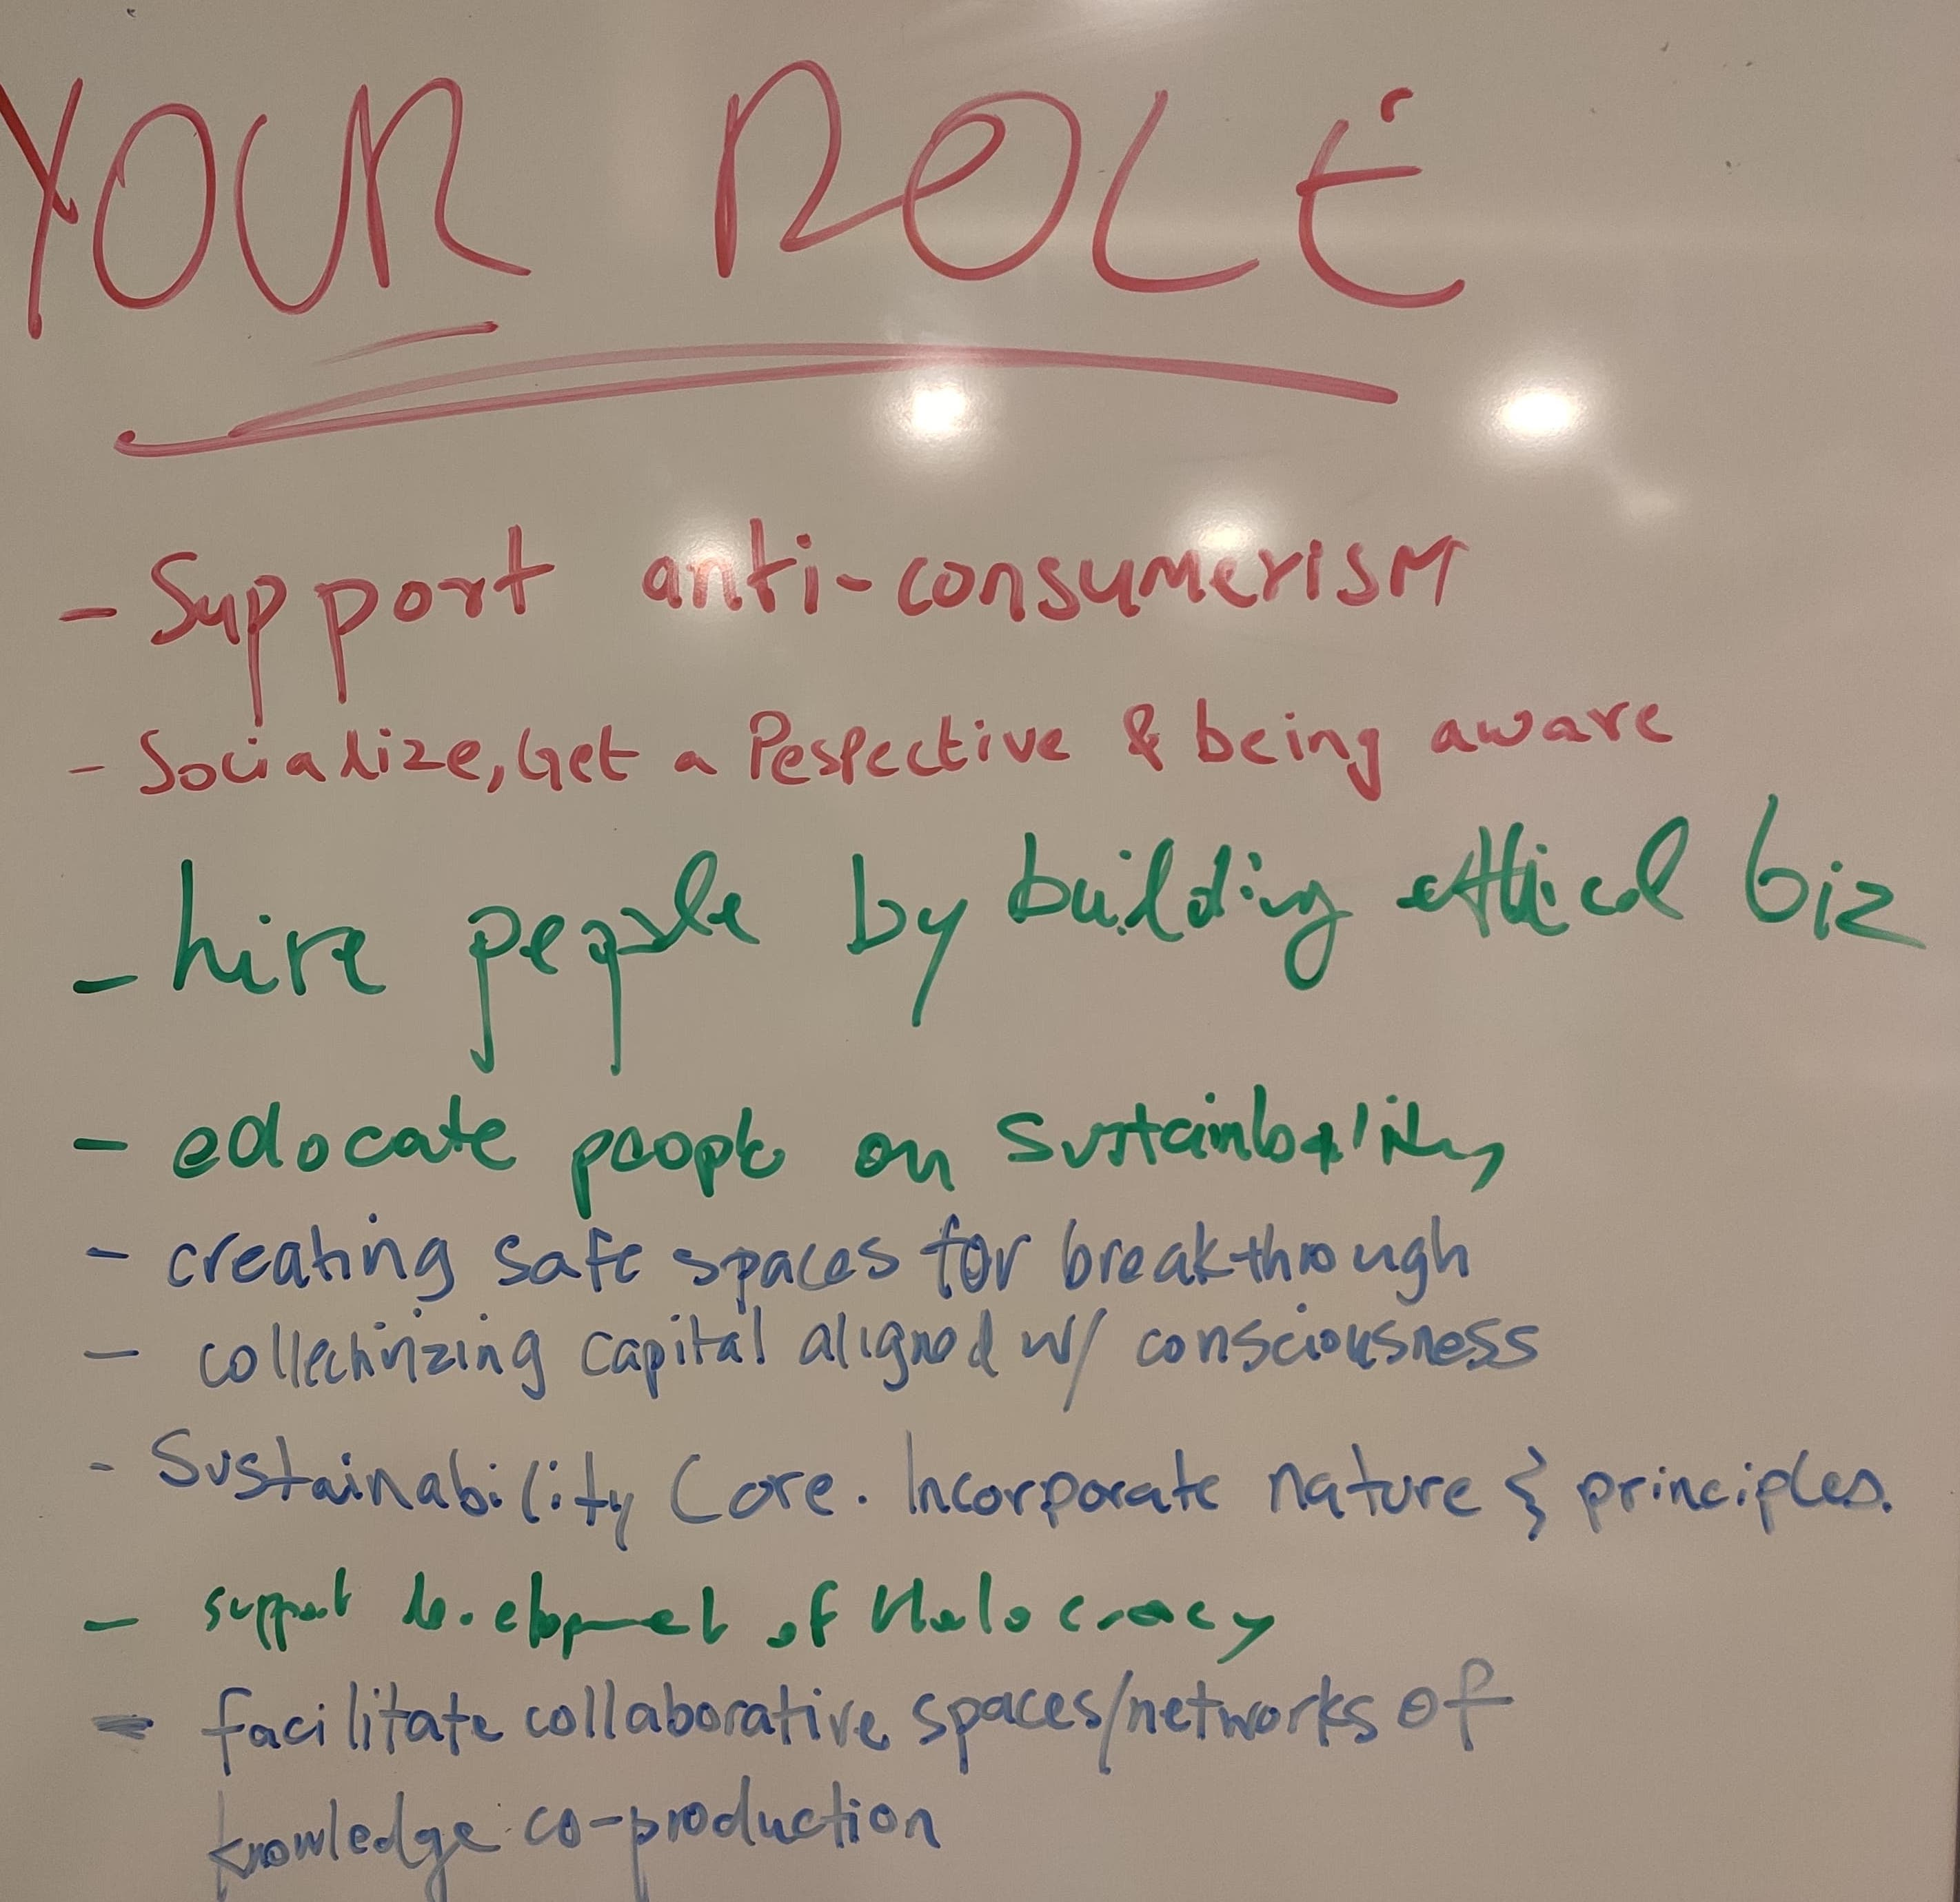 YOUR ROLE
- Support anti-consumerism
- Socialize, Get a Pespective & being aware
- hire people by building ethical biz
- edocate people on sustainbality
- creating safe spaces for breakthrough
- collectivizing capital aligned w/ consciousness
- Sustainability Core. Incorporate nature & principles.
- support development of Holocracy
- facilitate collaborative spaces/networks of
knowledge co-production